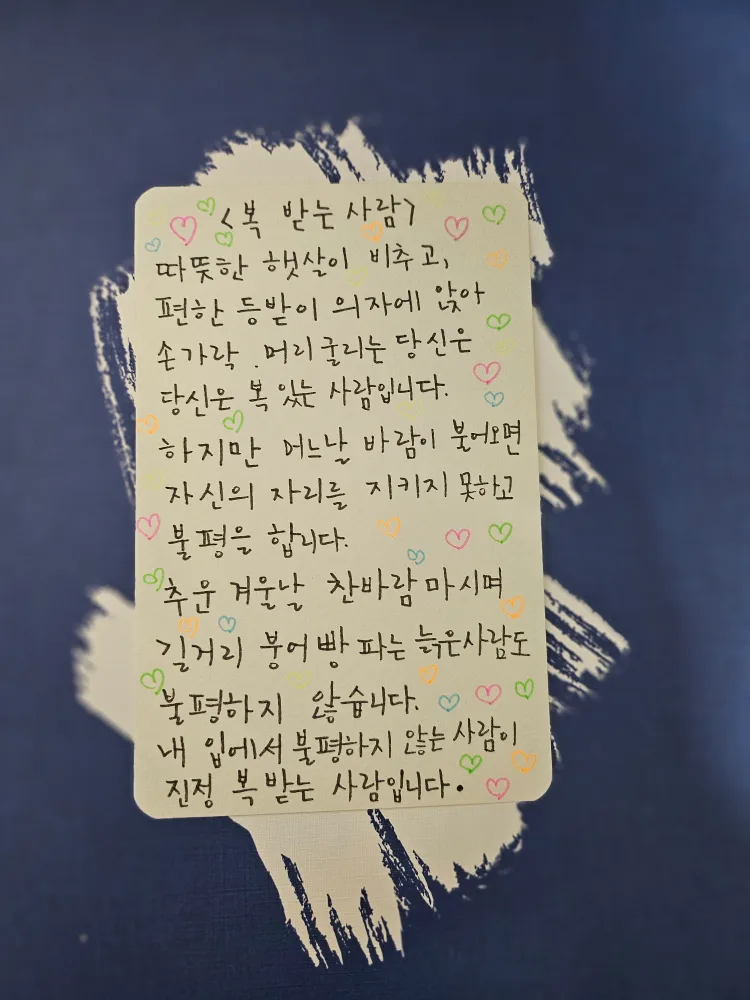 <복 받는 사람>
따뜻한 햇살이 비추고,
편한 등받이 의자에 앉아
손가락 . 머리 굴리는 당신은
당신은 복 있는 사람입니다.
하지만 어느날 바람이 불어오면
자신의 자리를 지키지 못하고
불평을 합니다.
추운 겨울날 찬바람 마시며
길거리 붕어빵 파는 늙은사람도
불평하지 않습니다.
내 입에서 불평하지 않는 사람이
진정 복 받는 사람입니다.